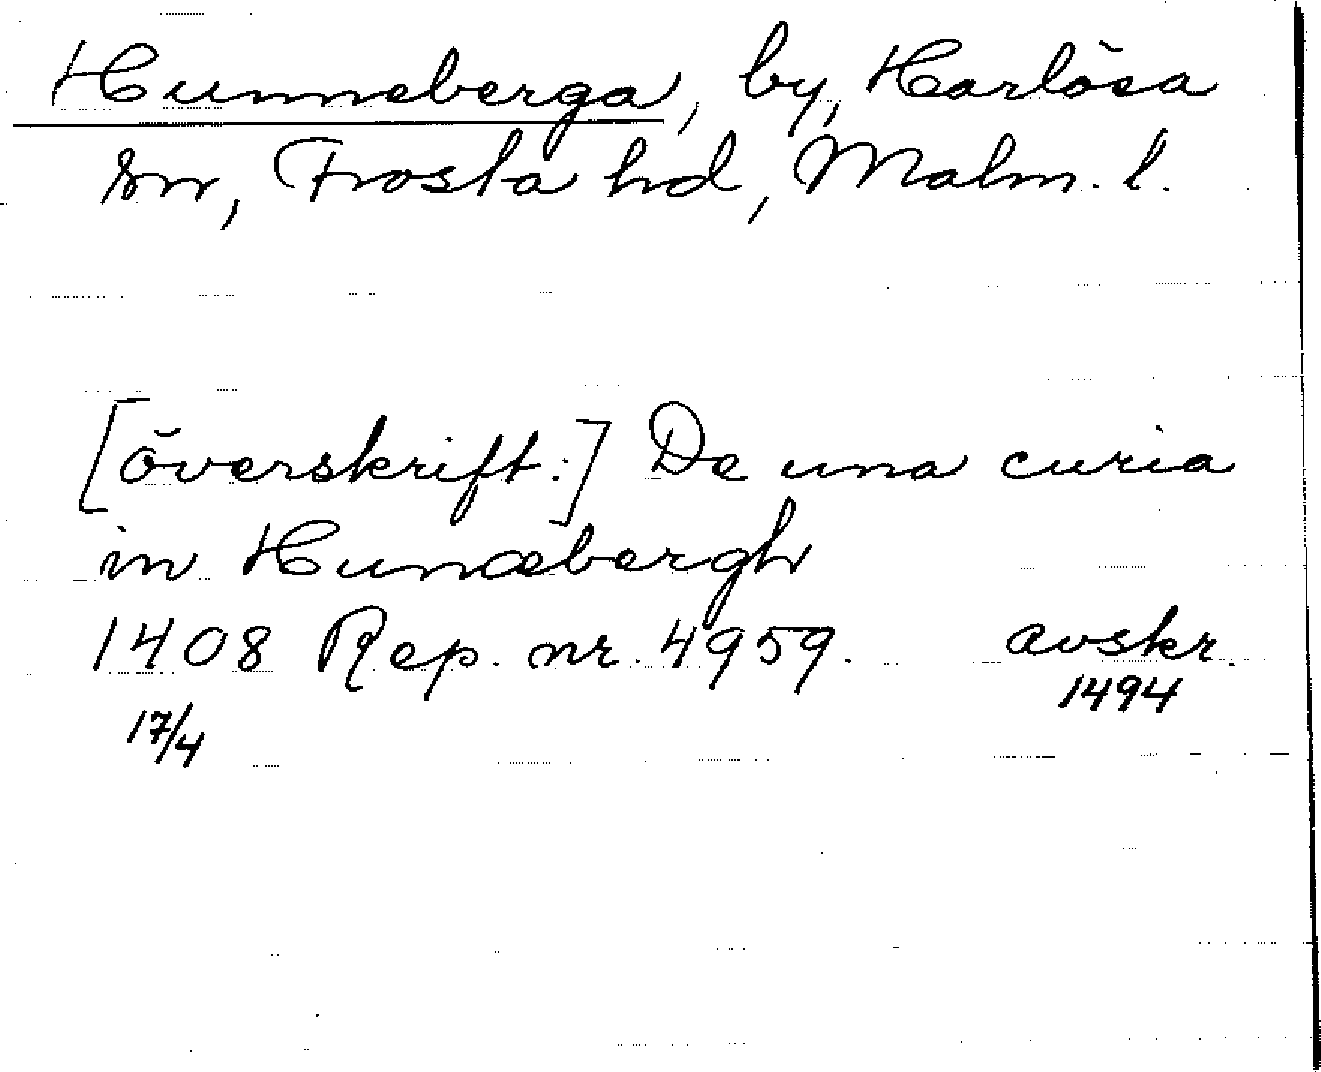 Hunneberga, by, Harlösa
sn, Frosta hd, Malm. l.
[överskrift:] De una curia
in Hunæbergh
1408 Rep. nr. 4959. avskr.
17/4 1494